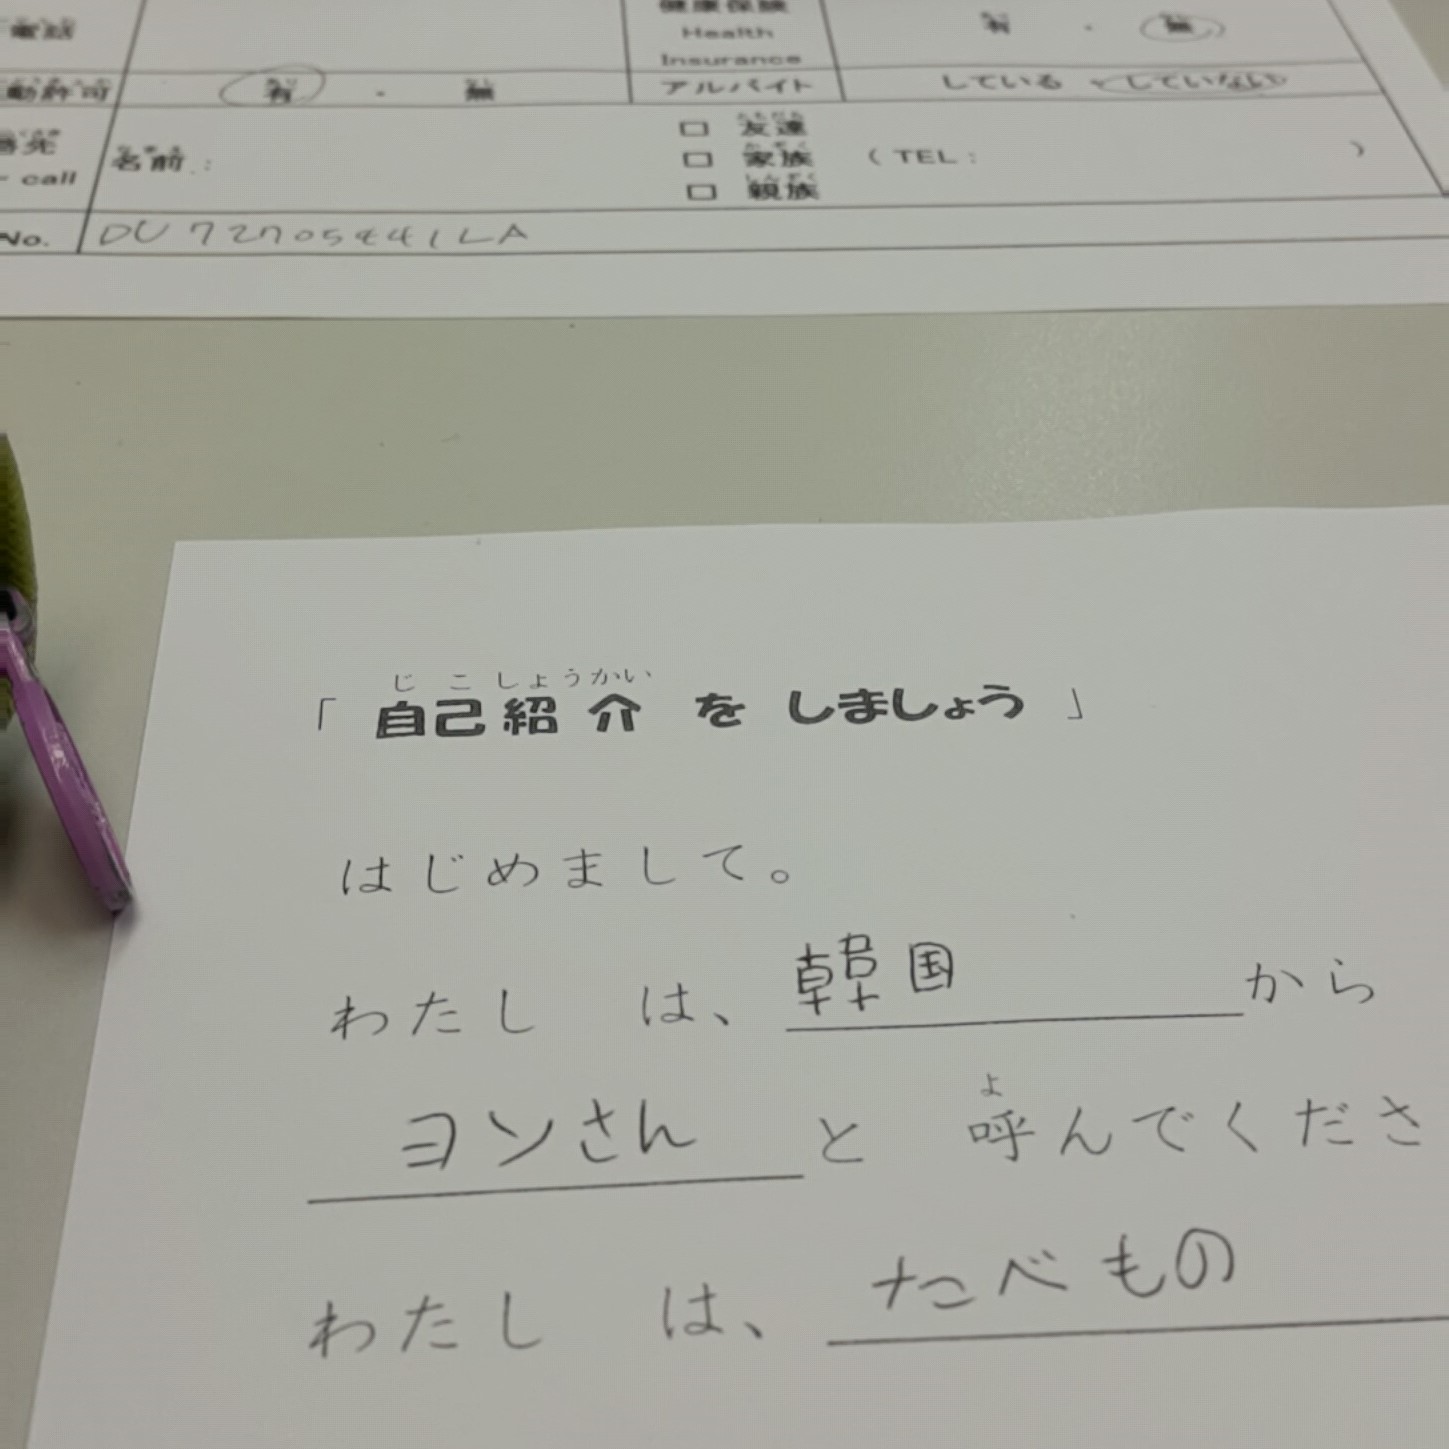 電話 健康保険 Health Insurance 有 ・ 無
動許可 有 ・ 無 アルバイト している ・ していない
□ 友達
call 名前: □ 家族 (TEL: )
□ 親族
No.
「自己紹介 を しましょう」
じ こ しょうかい
はじめまして。
わたし は、韓国から
ヨンさん と 呼んでくださ
よ
わたし は、たべもの